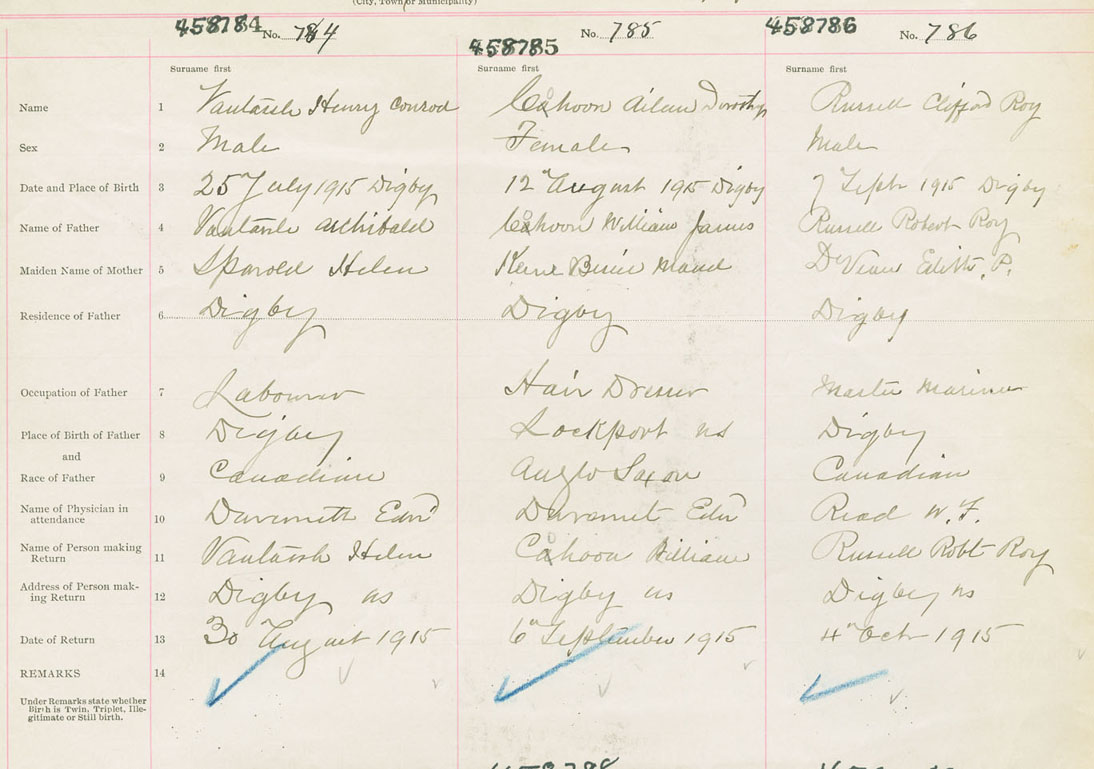 (City, Town or Municipality)
458784 No. 784 458785 No. 785 458786 No. 786
Surname first Surname first Surname first
Name 1 Henry Conrod Cahoon Dorothy Russell Clifford Roy
Sex 2 Male Female Male
Date and Place of Birth 3 25" July 1915 Digby 12" August 1915 Digby 7 Sept 1915 Digby
Name of Father 4 Archibald Cahoon William James Russell Robert Roy
Maiden Name of Mother 5 Helen Maud Edith. P.
Residence of Father 6 Digby Digby Digby
Occupation of Father 7 Labourer Hair Dresser Master Mariner
Place of Birth of Father 8 Digby Lockport ns Digby
and
Race of Father 9 Canadian Anglo Saxon Canadian
Name of Physician in
attendance 10 Edw'd Edw'd Read W. F.
Name of Person making
Return 11 Helen Cahoon William Russell Robt Roy
Address of Person mak-
ing Return 12 Digby ns Digby ns Digby ns
Date of Return 13 30 August 1915 6" September 1915 4" Oct 1915
REMARKS 14
Under Remarks state whether
Birth is Twin, Triplet, Ille-
gitimate or Still birth.